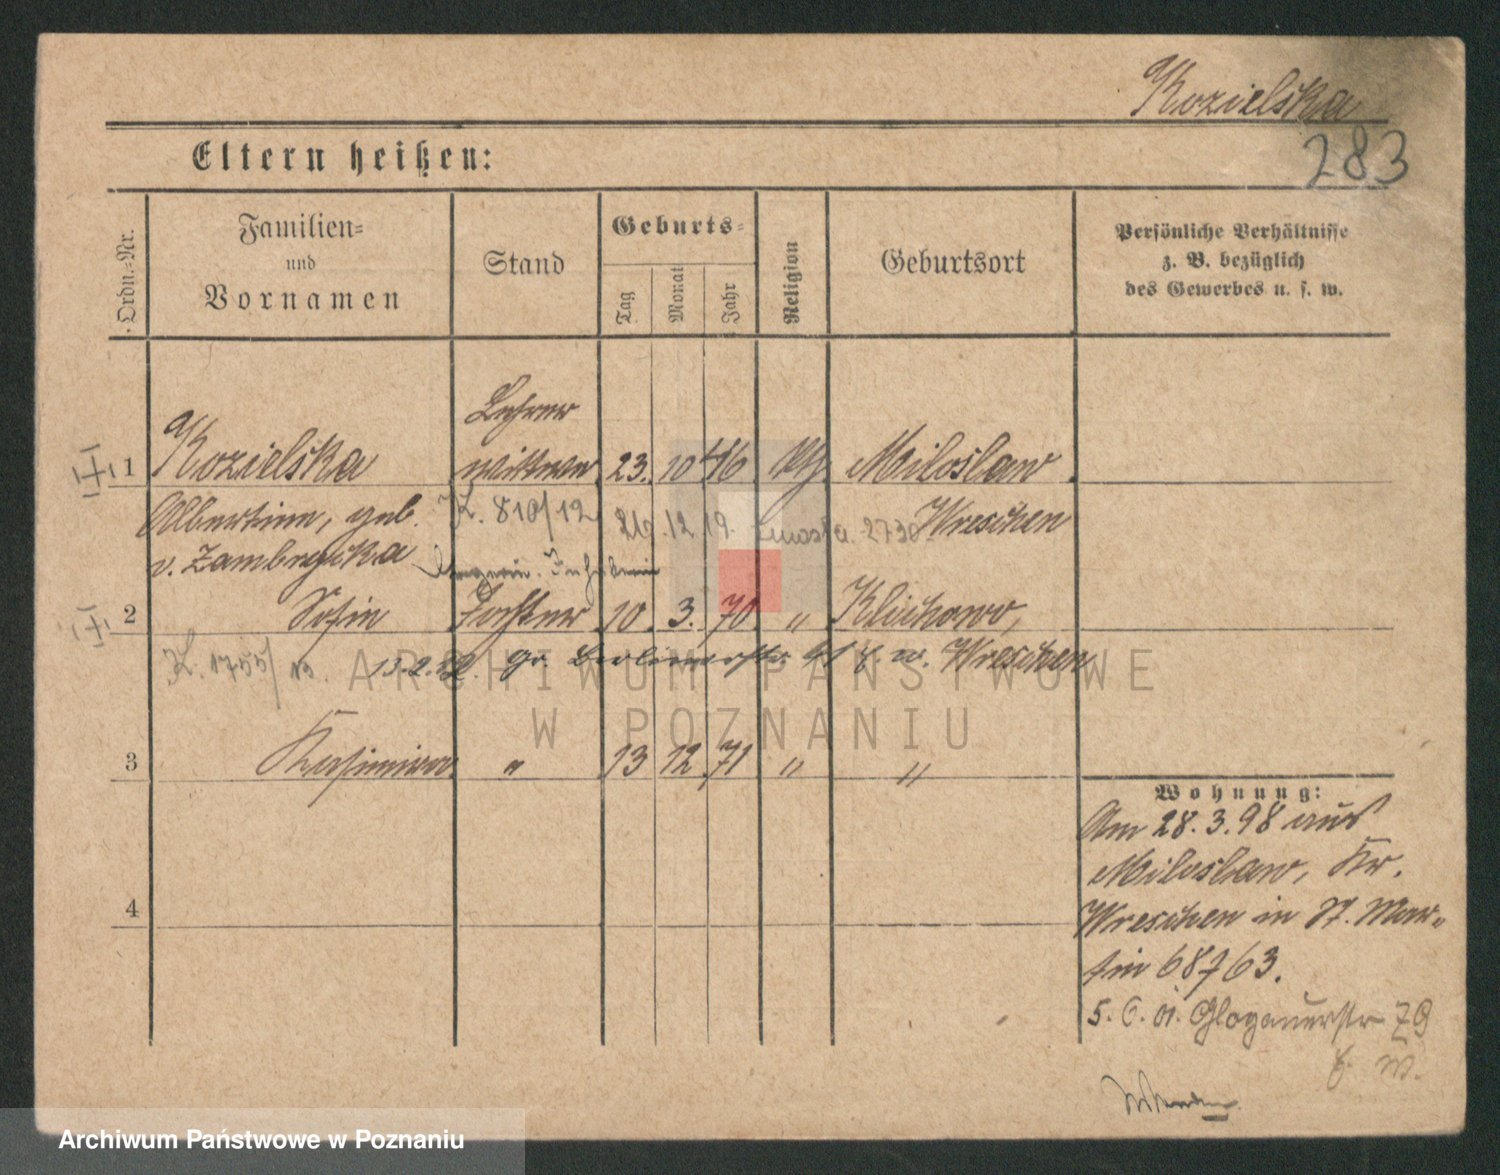 Kozielska
283
Eltern heißen:
Ordn.-Nr.
Familien-
und
Vornamen
Stand
Geburts-
Tag
Monat
Jahr
Religion
Geburtsort
Persönliche Verhältnisse
z. B. bezüglich
des Gewerbes u. s. w.
Lehrer
1 Kozielska wittwe 23. 10 46 kth Miloslaw
Albertine, geb. K. 810/12 12. 19. 2730 Wreschen
v. Zambrzycka
2 Sofie Tochter 10 3. 70 " Klichowo,
K. 1755/13. 13.2.22. gr. Berlinerstr. b. w. Wreschen
3 Kasimira " 13 12 71 " "
4
Wohnung:
Am 28.3.98 aus
Miloslaw, Kr.
Wreschen in St. Mar-
tin 68/63.
5.6.01. Glogauerstr
b. w.
ARCHIWUM PAŃSTWOWE
W POZNANIU
Archiwum Państwowe w Poznaniu